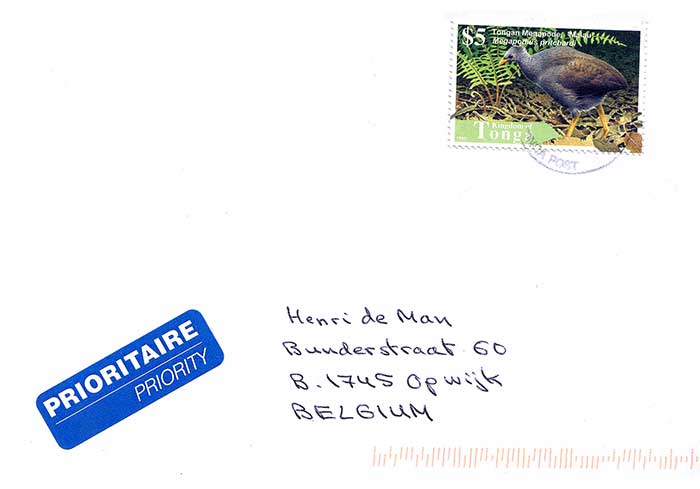 $5
Tongan Megapode, "Malau"
Megapodius pritchardi
Kingdom of
Tonga
POST
PRIORITAIRE
PRIORITY
Henri de Man
Bunderstraat 60
B.1745 Opwijk
BELGIUM